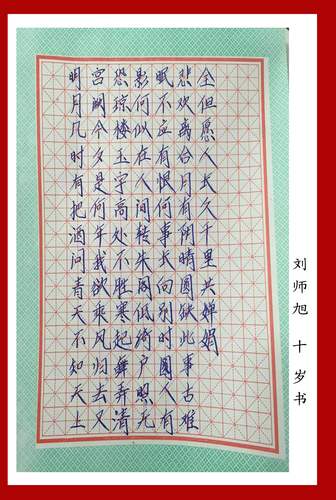 明月几时有把酒问青天不知天上
宫阙今夕是何年我欲乘风归去又
恐琼楼玉宇高处不胜寒起舞弄清
影何似在人间转朱阁低绮户照无
眠不应有恨何事长向别时圆人有
悲欢离合月有阴晴圆缺此事古难
全但愿人长久千里共婵娟
刘师旭 十岁书